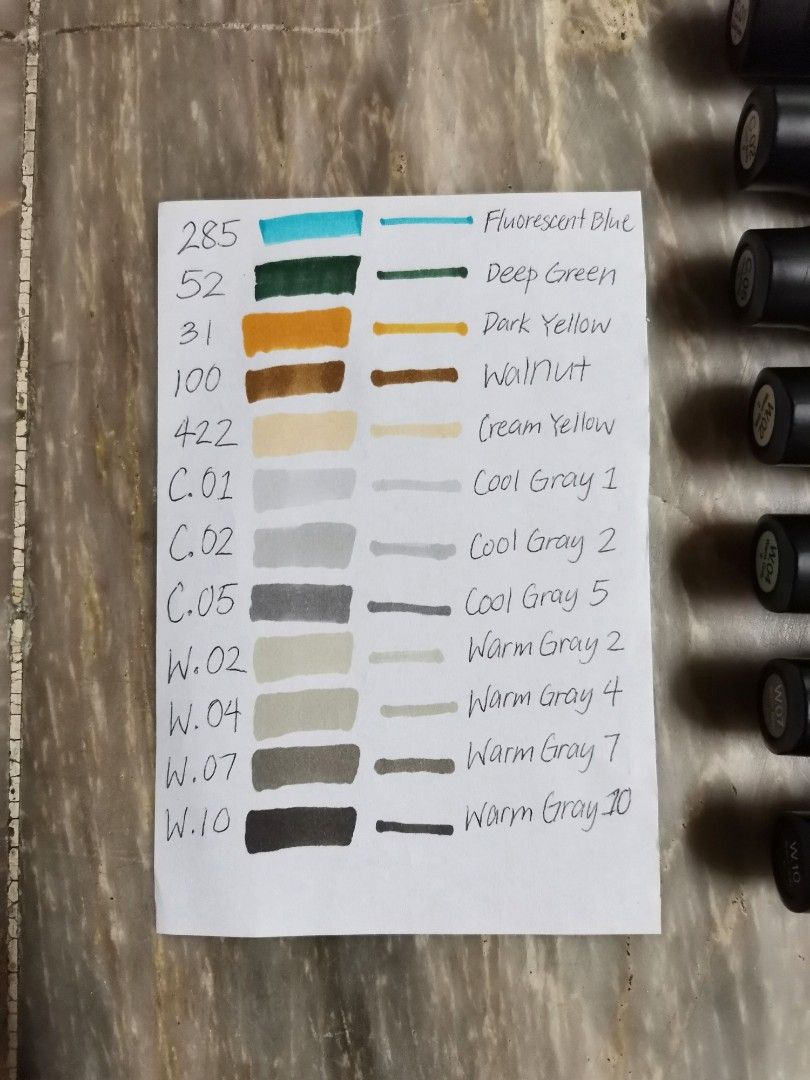 285 Fluorescent Blue
52 Deep Green
31 Dark Yellow
100 Walnut
422 Cream Yellow
C.01 Cool Gray 1
C.02 Cool Gray 2
C.05 Cool Gray 5
W.02 Warm Gray 2
W.04 Warm Gray 4
W.07 Warm Gray 7
W.10 Warm Gray 10
W02
W04
W07
W10